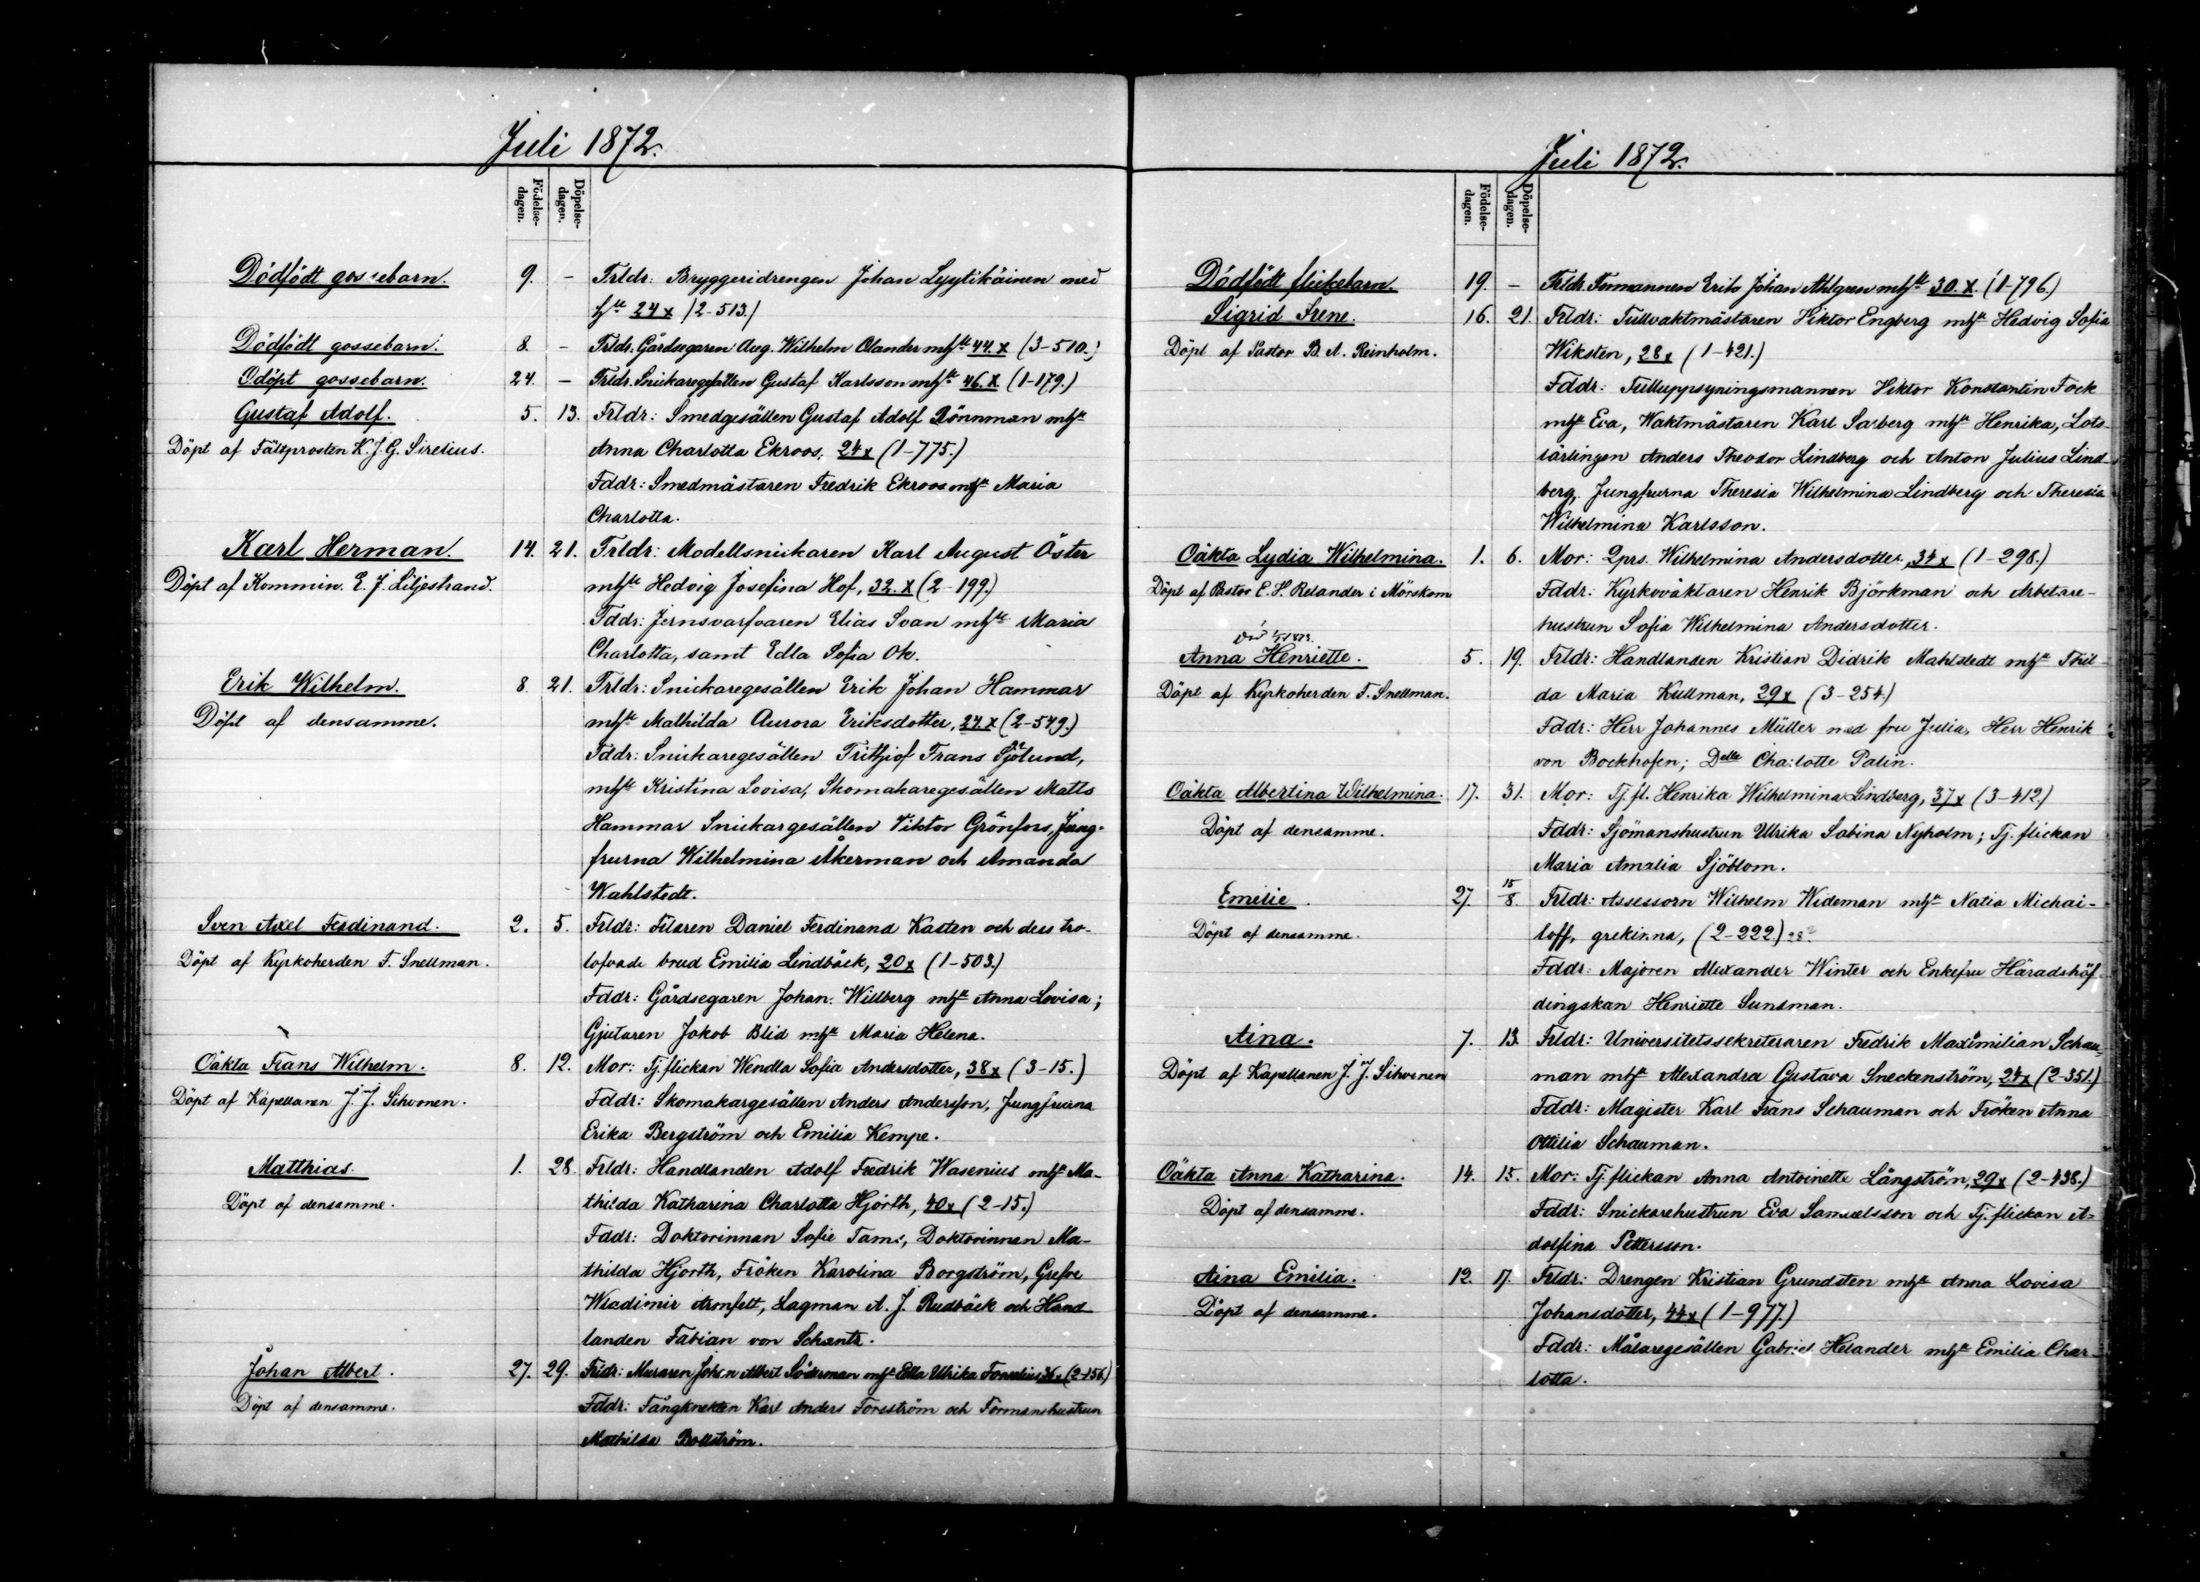 Juli 1872.
Födelse-dagen.
Döpelse-dagen.
Dödfödt gossebarn. 9. – Frldr: Bryggeridrengen Johan Lyytikäinen med
hu 24 x (2-513.)
Dödfödt gossebarn. 8. – Frldr. Gårdsegaren Aug. Wilhelm Olander mhu 44. x (3-510.)
Odöpt gossebarn. 24. – Frldr. Snickaregesällen Gustaf Karlsson mhu 46. x (1-179.)
Gustaf Adolf. 5. 13. Frldr: Smedgesällen Gustaf Adolf Rönnman mhu
Döpt af Fältprosten K. J. G. Sirelius. Anna Charlotta Ekroos, 24 x (1-775.)
Fddr: Smedmästaren Fredrik Ekroos mhu Maria
Charlotta.
Karl Herman. 14. 21. Frldr: Modellsnickaren Karl August Öster
Döpt af Kommin. E. J. Liljestrand. mhu Hedvig Josefina Hof, 32. x (2-199.)
Fddr: Jernsvarfvaren Elias Svan mhu Maria
Charlotta, samt Edla Sofia Ok.
Erik Wilhelm. 8. 21. Frldr: Snickaregesällen Erik Johan Hammar
Döpt af densamme. mhu Mathilda Aurora Eriksdotter, 24 x (2-549.)
Fddr: Snickaregesällen Frithjof Frans Sjölund,
mhu Kristina Lovisa, Skomakaregesällen Matts
Hammar Snickargesällen Viktor Grönfors, Jung-
frurna Wilhelmina Åkerman och Amanda
Wahlstedt.
Sven Axel Ferdinand. 2. 5. Frldr: Filaren Daniel Ferdinand Kasten och dess tro-
Döpt af Kyrkoherden F. Snellman. lofvade brud Emilia Lindbäck, 20 x (1-503.)
Fddr: Gårdsegaren Johan Willberg mhu Anna Lovisa;
Gjutaren Jakob Blid mhu Maria Helena.
Oäkta Frans Wilhelm. 8. 12. Mor: Tj. flickan Wendla Sofia Andersdotter, 38 x (3-15.)
Döpt af Kapellanen J. J. Sihvonen. Fddr: Skomakargesällen Anders Andersson, Jungfrurna
Erika Bergström och Emilia Kempe.
Matthias. 1. 28. Frldr: Handlanden Adolf Fredrik Wasenius mhu Ma-
Döpt af densamme. thilda Katharina Charlotta Hjorth, 40 x (2-15.)
Fddr: Doktorinnan Sofie Tams, Doktorinnan Ma-
thilda Hjorth, Fröken Karolina Borgström, Grefve
Wladimir Armfelt, Lagman A. J. Rudbäck och Hand
landen Fabian von Schantz.
Johan Albert. 27. 29. Frldr: Muraren Johan Albert Söderman mhu Edla Ulrika Forselius 36 x (2-156.)
Döpt af densamme. Fddr: Fångknekten Karl Anders Forsström och Formanshustrun
Mathilda Bollström.
Juli 1872.
Födelse-dagen.
Döpelse-dagen.
Dödfödt flickebarn. 19. – Frldr. Formannen Erik Johan Ahlgren mhu 30. x (1-796.)
Sigrid Irene. 16. 21. Frldr: Tullvaktmästaren Viktor Engberg mhu Hedvig Sofia
Döpt af Pastor B. A. Reinholm. Wiksten, 28 x (1-421.)
Fddr: Tulluppsyningsmannen Viktor Konstantin Fock
mhu Eva, Waktmästaren Karl Salberg mhu Henrika, Lots-
lärlingen Anders Theodor Lindberg och Anton Julius Lind-
berg, Jungfrurna Theresia Wilhelmina Lindberg och Theresia
Wilhelmina Karlsson.
Oäkta Lydia Wilhelmina. 1. 6. Mor: Qprs. Wilhelmina Andersdotter, 34 x (1-298.)
Döpt af Pastor E. H. Relander i Mörskom Fddr: Kyrkovaktaren Henrik Björkman och Arbetare-
hustrun Sofia Wilhelmina Andersdotter.
Anna Henriette. 5. 19. Frldr: Handlanden Kristian Didrik Mahlstedt mhu Thil-
Döpt af Kyrkoherden F. Snellman. da Maria Kullman, 29 x (3-254.)
Fddr: Herr Johannes Müller med fru Julia, Herr Henrik
von Bockhofen; Delle Charlotte Palin.
Oäkta Albertina Wilhelmina. 17. 31. Mor: Tj. fl. Henrika Wilhelmina Lindberg, 37 x (3-412.)
Döpt af densamme. Fddr: Sjömanshustrun Ulrika Sabina Nyholm; Tj. flickan
Maria Amalia Sjöblom.
Emilie. 27. 15/8. Frldr: Assessorn Wilhelm Wideman mhu Natia Michai-
Döpt af densamme. loff, grekinna, (2-222.) 28
Fddr: Majoren Alexander Winter och Enkefru Häradshöf-
dingskan Henriette Sunsman.
Aina. 7. 13. Frldr: Universitetssekreteraren Fredrik Maximilian Schau-
Döpt af Kapellanen J. J. Sihvonen man mhu Alexandra Gustava Sneckenström, 24 x (2-351.)
Fddr: Magister Karl Frans Schauman och Fröken Anna
Ottilia Schauman.
Oäkta Anna Katharina. 14. 15. Mor: Tj. flickan Anna Antoinette Långström, 29 x (2-438.)
Döpt af densamme. Fddr: Snickarehustrun Eva Samuelsson och Tj. flickan A-
dolfina Pettersson.
Aina Emilia. 12. 17. Frldr: Drengen Kristian Grundsten mhu Anna Lovisa
Döpt af densamme. Johansdotter, 44 x (1-977.)
Fddr: Målaregesällen Gabriel Helander mhu Emilia Char-
lotta.